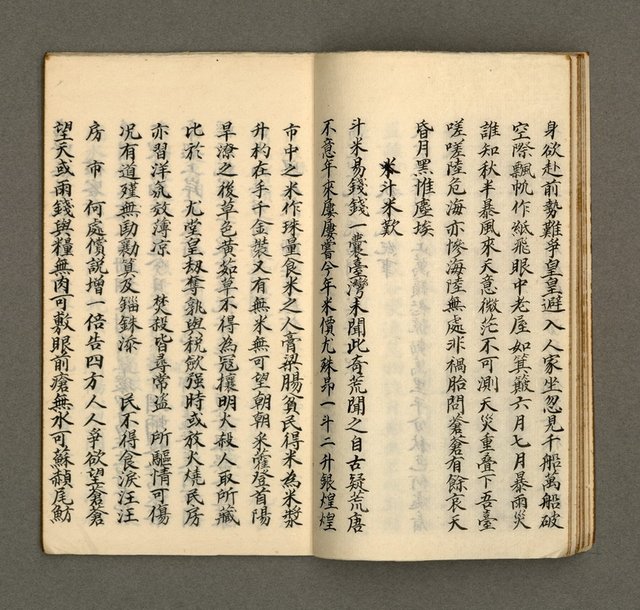 身欲赴前勢難爭皇皇避入人家坐忽見千船萬船破
空際飄帆作紙飛眼中老屋如箕簸六月七月暴雨災
誰知秋半暴風來天意微茫不可測天災重叠下吾臺
嗟嗟陸危海亦慘海陸無處非禍胎問蒼蒼有餘哀天
昏月黑惟塵埃
米斗米歎
斗米易錢錢一囊臺灣未聞此奇荒聞之自古疑荒唐
不意年來屢屢嘗今年米價尤殊昂一斗二升銀煌煌
市中之米作珠量食米之人膏粱腸貧民得米為米漿
升杓在手千金裝又有無米無可望朝朝采薇登首陽
旱潦之後草色黃茹草不得為寇攘明火殺人取所藏
比於 尤堂皇刼奪孰與稅斂强時或放火燒民房
亦習洋氛效薄凉 焚殺皆尋常盜 所驅情可傷
况有道殣無助勷算及錙銖漆 民不得食淚汪汪
房 市 何處償説增一倍告四方人人爭欲望蒼蒼
望天或雨錢與糧無肉可敷眼前瘡無水可蘇頳尾魴